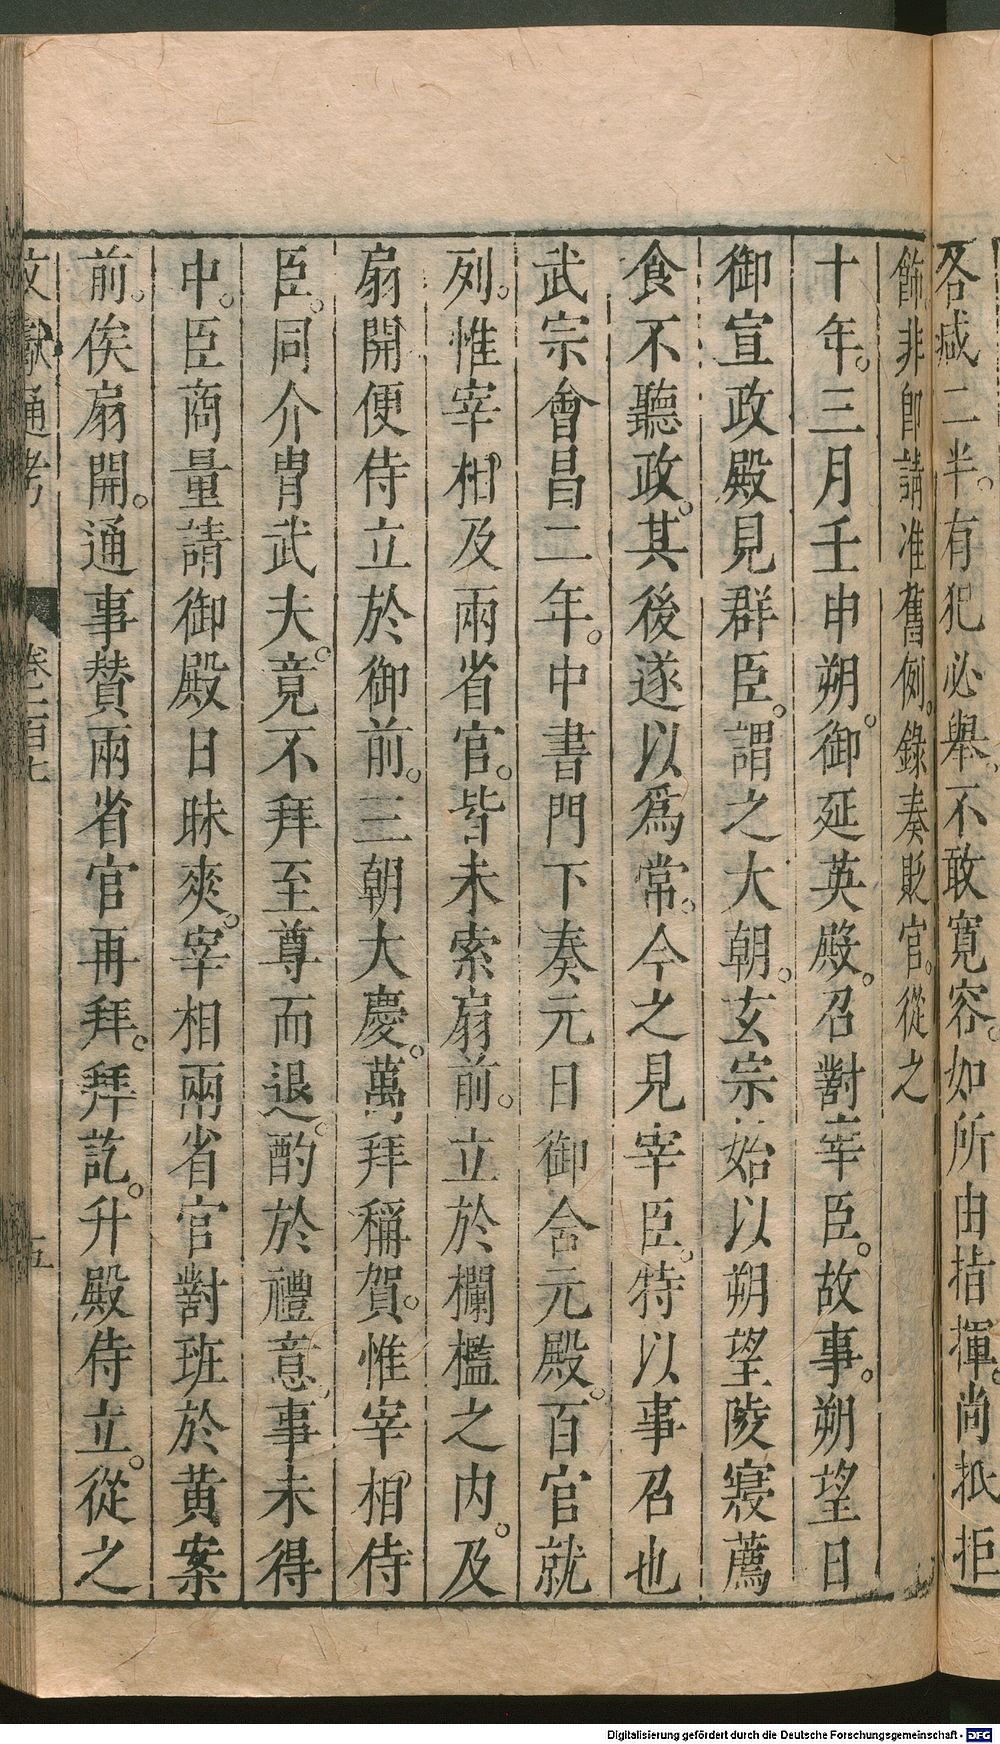 各減二半。有犯必舉。不敢寬容。如所由指揮。尚抵拒
飾非卽請准舊例。錄奏貶官。從之
十年。三月壬申朔。御延英殿。召對宰臣。故事。朔望日
御宣政殿見群臣。謂之大朝。玄宗始以朔望陵寢薦
食不聽政。其後遂以爲常。今之見宰臣。特以事召也
武宗會昌二年。中書門下奏元日御含元殿。百官就
列。惟宰相及兩省官。皆未索扇前。立於欄檻之內。及
扇開便侍立於御前。三朝大慶。萬拜稱賀。惟宰相侍
臣。同介胄武夫。竟不拜至尊而退。酌於禮意。事未得
中。臣商量請御殿日昧爽。宰相兩省官對班於黃案
前。俟扇開。通事贊兩省官再拜。拜訖。升殿侍立。從之
文獻通考 卷一百七 五
Digitalisierung gefördert durch die Deutsche Forschungsgemeinschaft - DFG